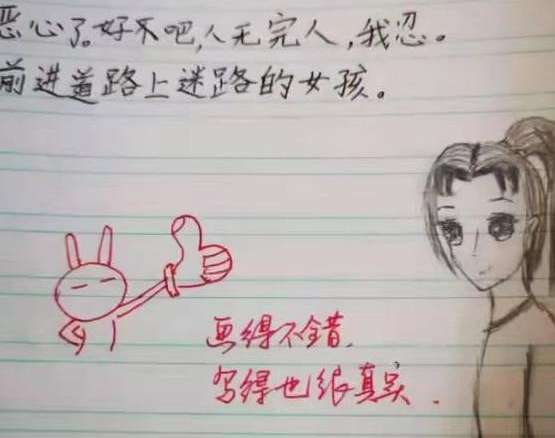 恶心了。好不吧,人无完人,我忍。
前进道路上迷路的女孩。
画得不错,
写得也很真实.